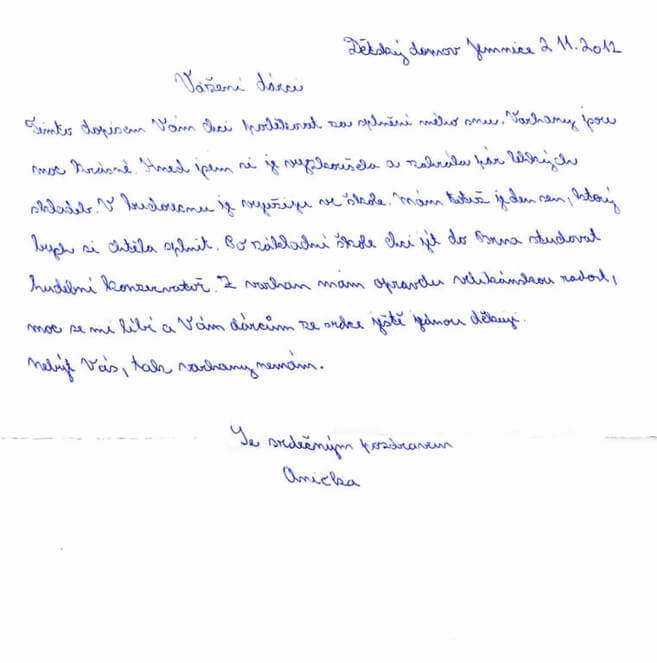 Dětský domov Jemnice 2 11.2012
Vážení dárci
Tímto dopisem Vám chci poděkovat za splnění mého snu. Varhany jsou
moc krásné. Hned jsem si je vyzkoušela a zahrála pár lehkých
skladeb. V budoucnu je využiju ve škole. Mám totiž jeden sen, který
bych si chtěla splnit. Po základní škole chci jít do Brna studovat
hudební konzervatoř. Z varhan mám opravdu velikánskou radost,
moc se mi líbí a Vám dárcům ze srdce ještě jednou děkuji.
Nebýt Vás, tak varhany nemám.
Se srdečným pozdravem
Anička